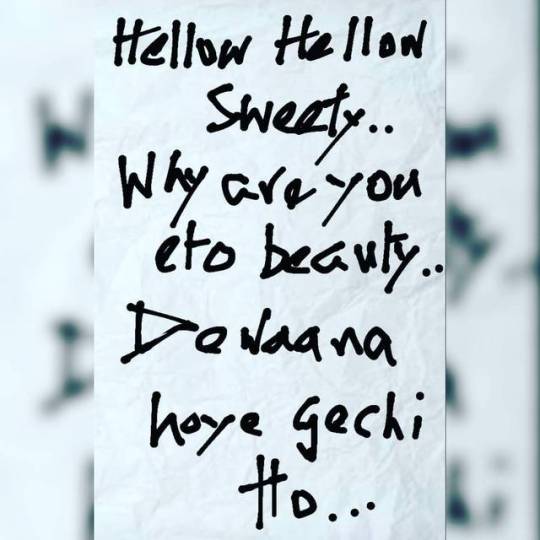 Hellow Hellow
Sweety..
Why are you
eto beauty..
Dewaana
hoye gechi
Ho...